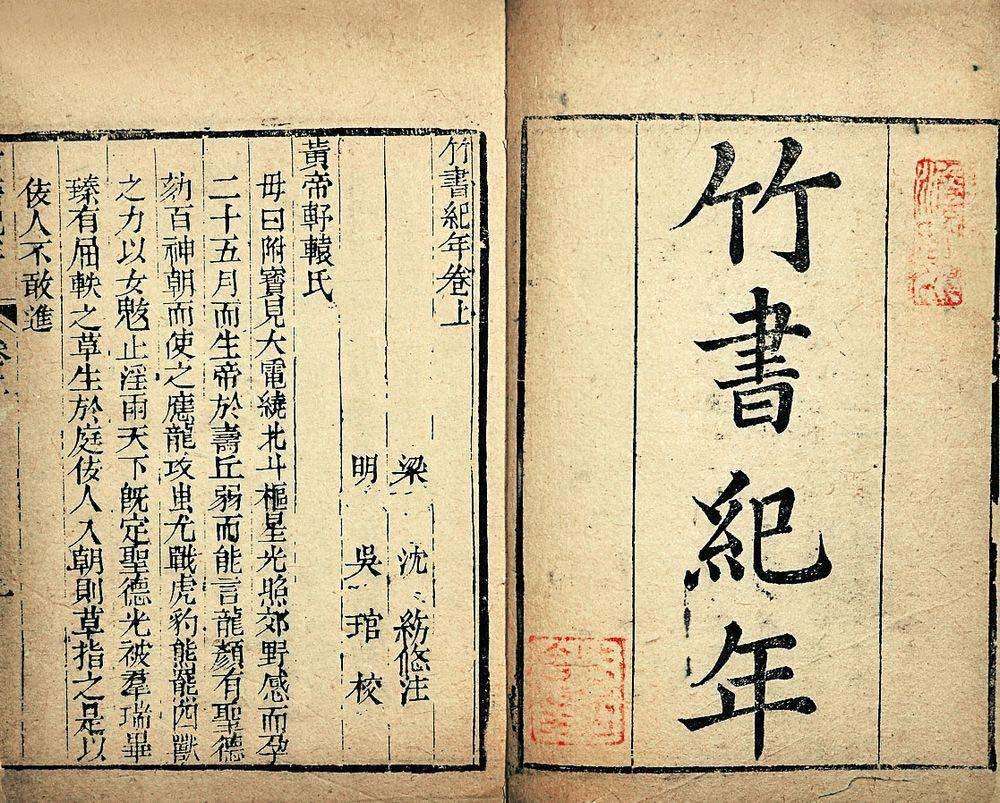 竹書紀年
竹書紀年卷上
梁 沈 約 悠注
明 吳 琯 校
黃帝軒轅氏
母曰附寶見大電繞北斗樞星光照郊野感而孕
二十五月而生帝於壽丘弱而能言龍顏有聖德
劾百神朝而使之應龍攻蚩尤戰虎豹熊羆四獸
之力以女魃止淫雨天下既定聖德光被羣瑞畢
臻有屈軼之草生於庭佞人入朝則草指之是以
佞人不敢進